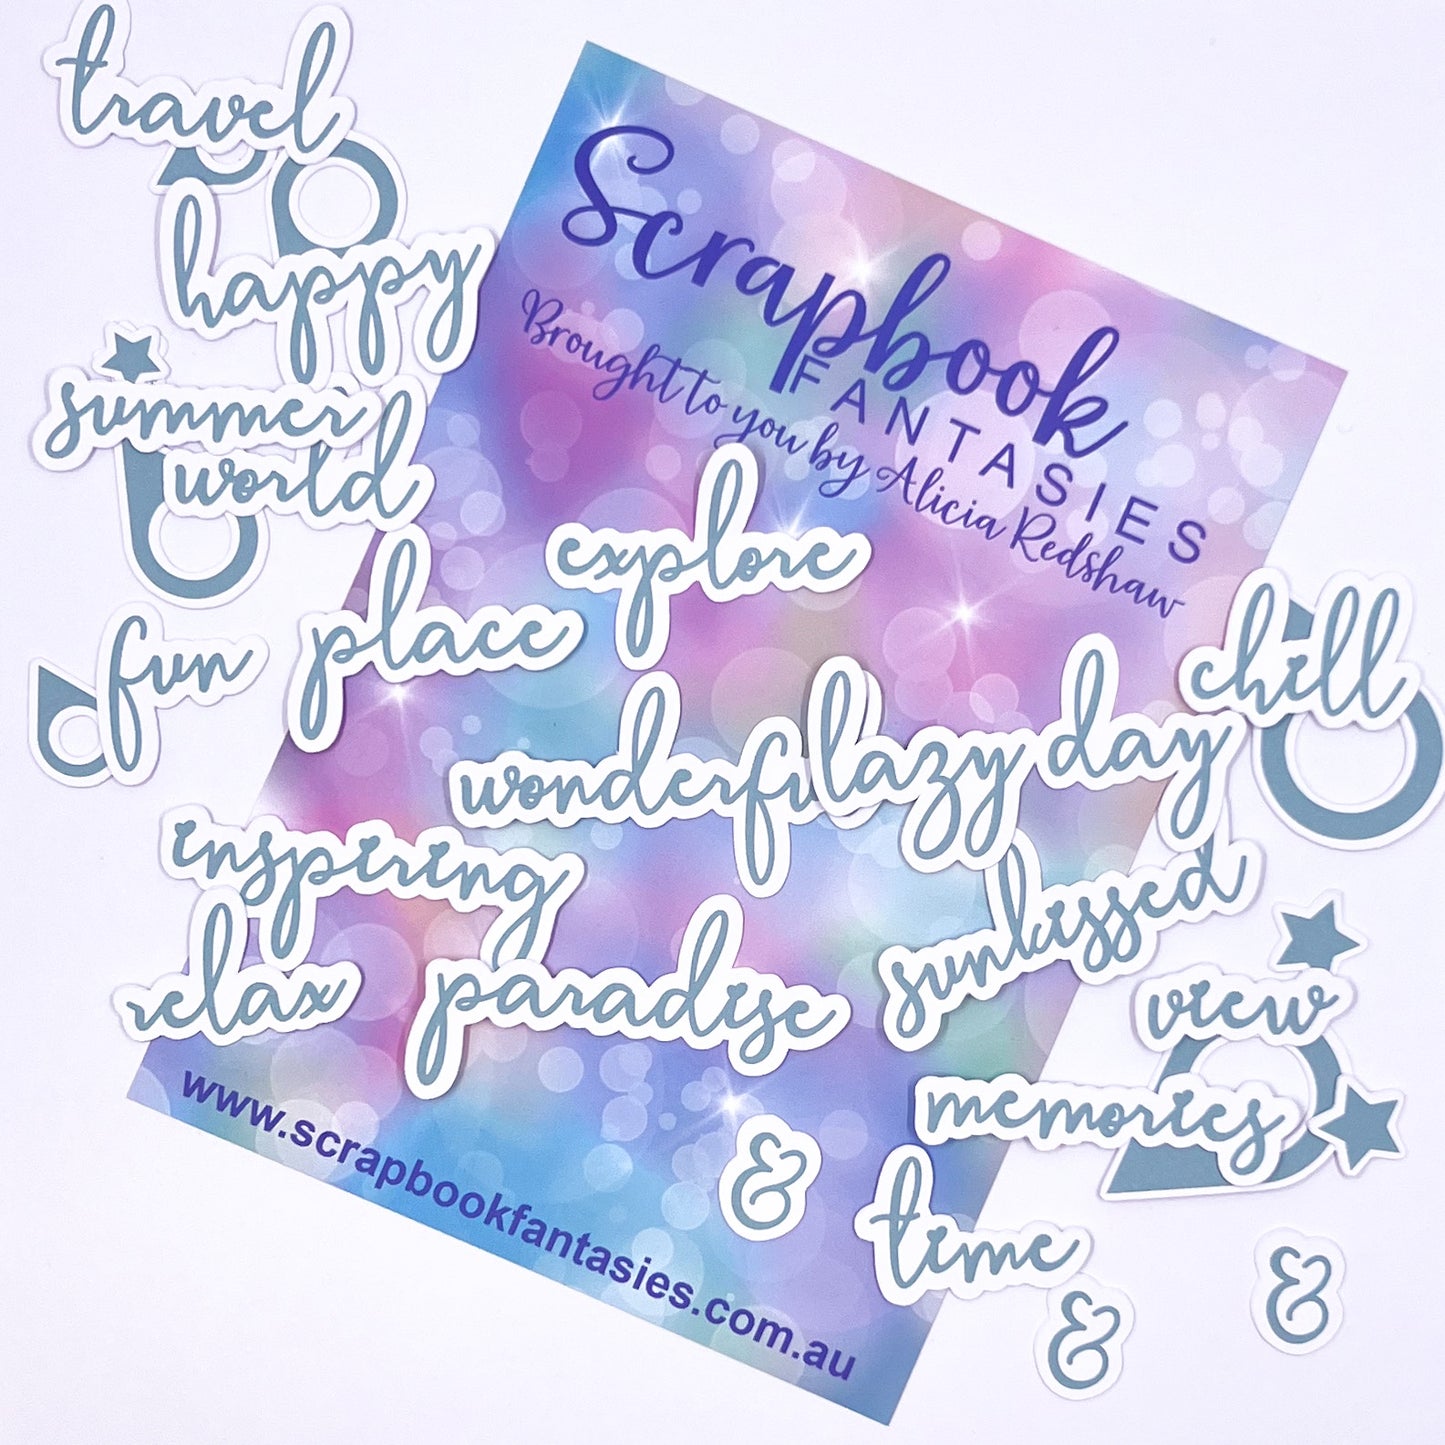 travel
happy
summer
world
Scrapbook
FANTASIES
Brought to you by Alicia Redshaw
explore
fun
place
chill
lazy day
inspiring
sunkissed
relax
paradise
view
memories
time
&
&
&
www.scrapbookfantasies.com.au